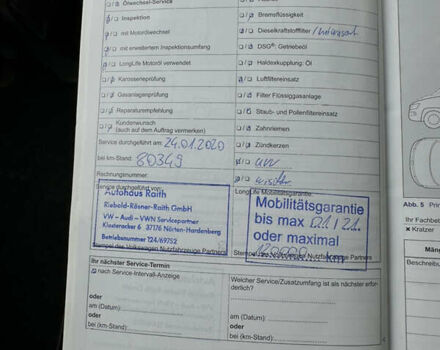 Ölwechsel-Service
Inspektion
Bremsflüssigkeit
mit Motorölwechsel
Dieselkraftstofffilter
mit erweitertem Inspektionsumfang
DSG®: Getriebeöl
LongLife Motoröl verwendet
Haldexkupplung: Öl
Karosserieprüfung
Luftfiltereinsatz
Gasanlagenprüfung
Filter Flüssiggasanlage
Reparaturempfehlung
Staub- und Pollenfiltereinsatz
Kundenwunsch
(auch auf dem Auftrag vermerken)
Zahnriemen
Zündkerzen
Service durchgeführt am: 24.01.2020
bei km-Stand: 80349
Rechnungsnummer:
Service durchgeführt von:
LongLife Mobilitätsgarantie
Autohaus Raith
Riebold-Räsner-Raith GmbH
VW – Audi – VWN Servicepartner
Klosteracker 6 37176 Nörten-Hardenberg
Betriebsnummer 124/69752
Stempel des Volkswagen Nutzfahrzeuge Partners
Mobilitätsgarantie
bis max 01/21
oder maximal
120000 km
Stempel des Volkswagen Nutzfahrzeuge Partners
Ihr nächster Service-Termin
nach Service-Intervall-Anzeige
oder
am (Datum):
oder
bei (km-Stand):
Welcher Service/Zusatzumfang ist als nächster erfor-
derlich?
oder
am (Datum):
oder
bei (km-Stand):
Abb. 5
Kratzer